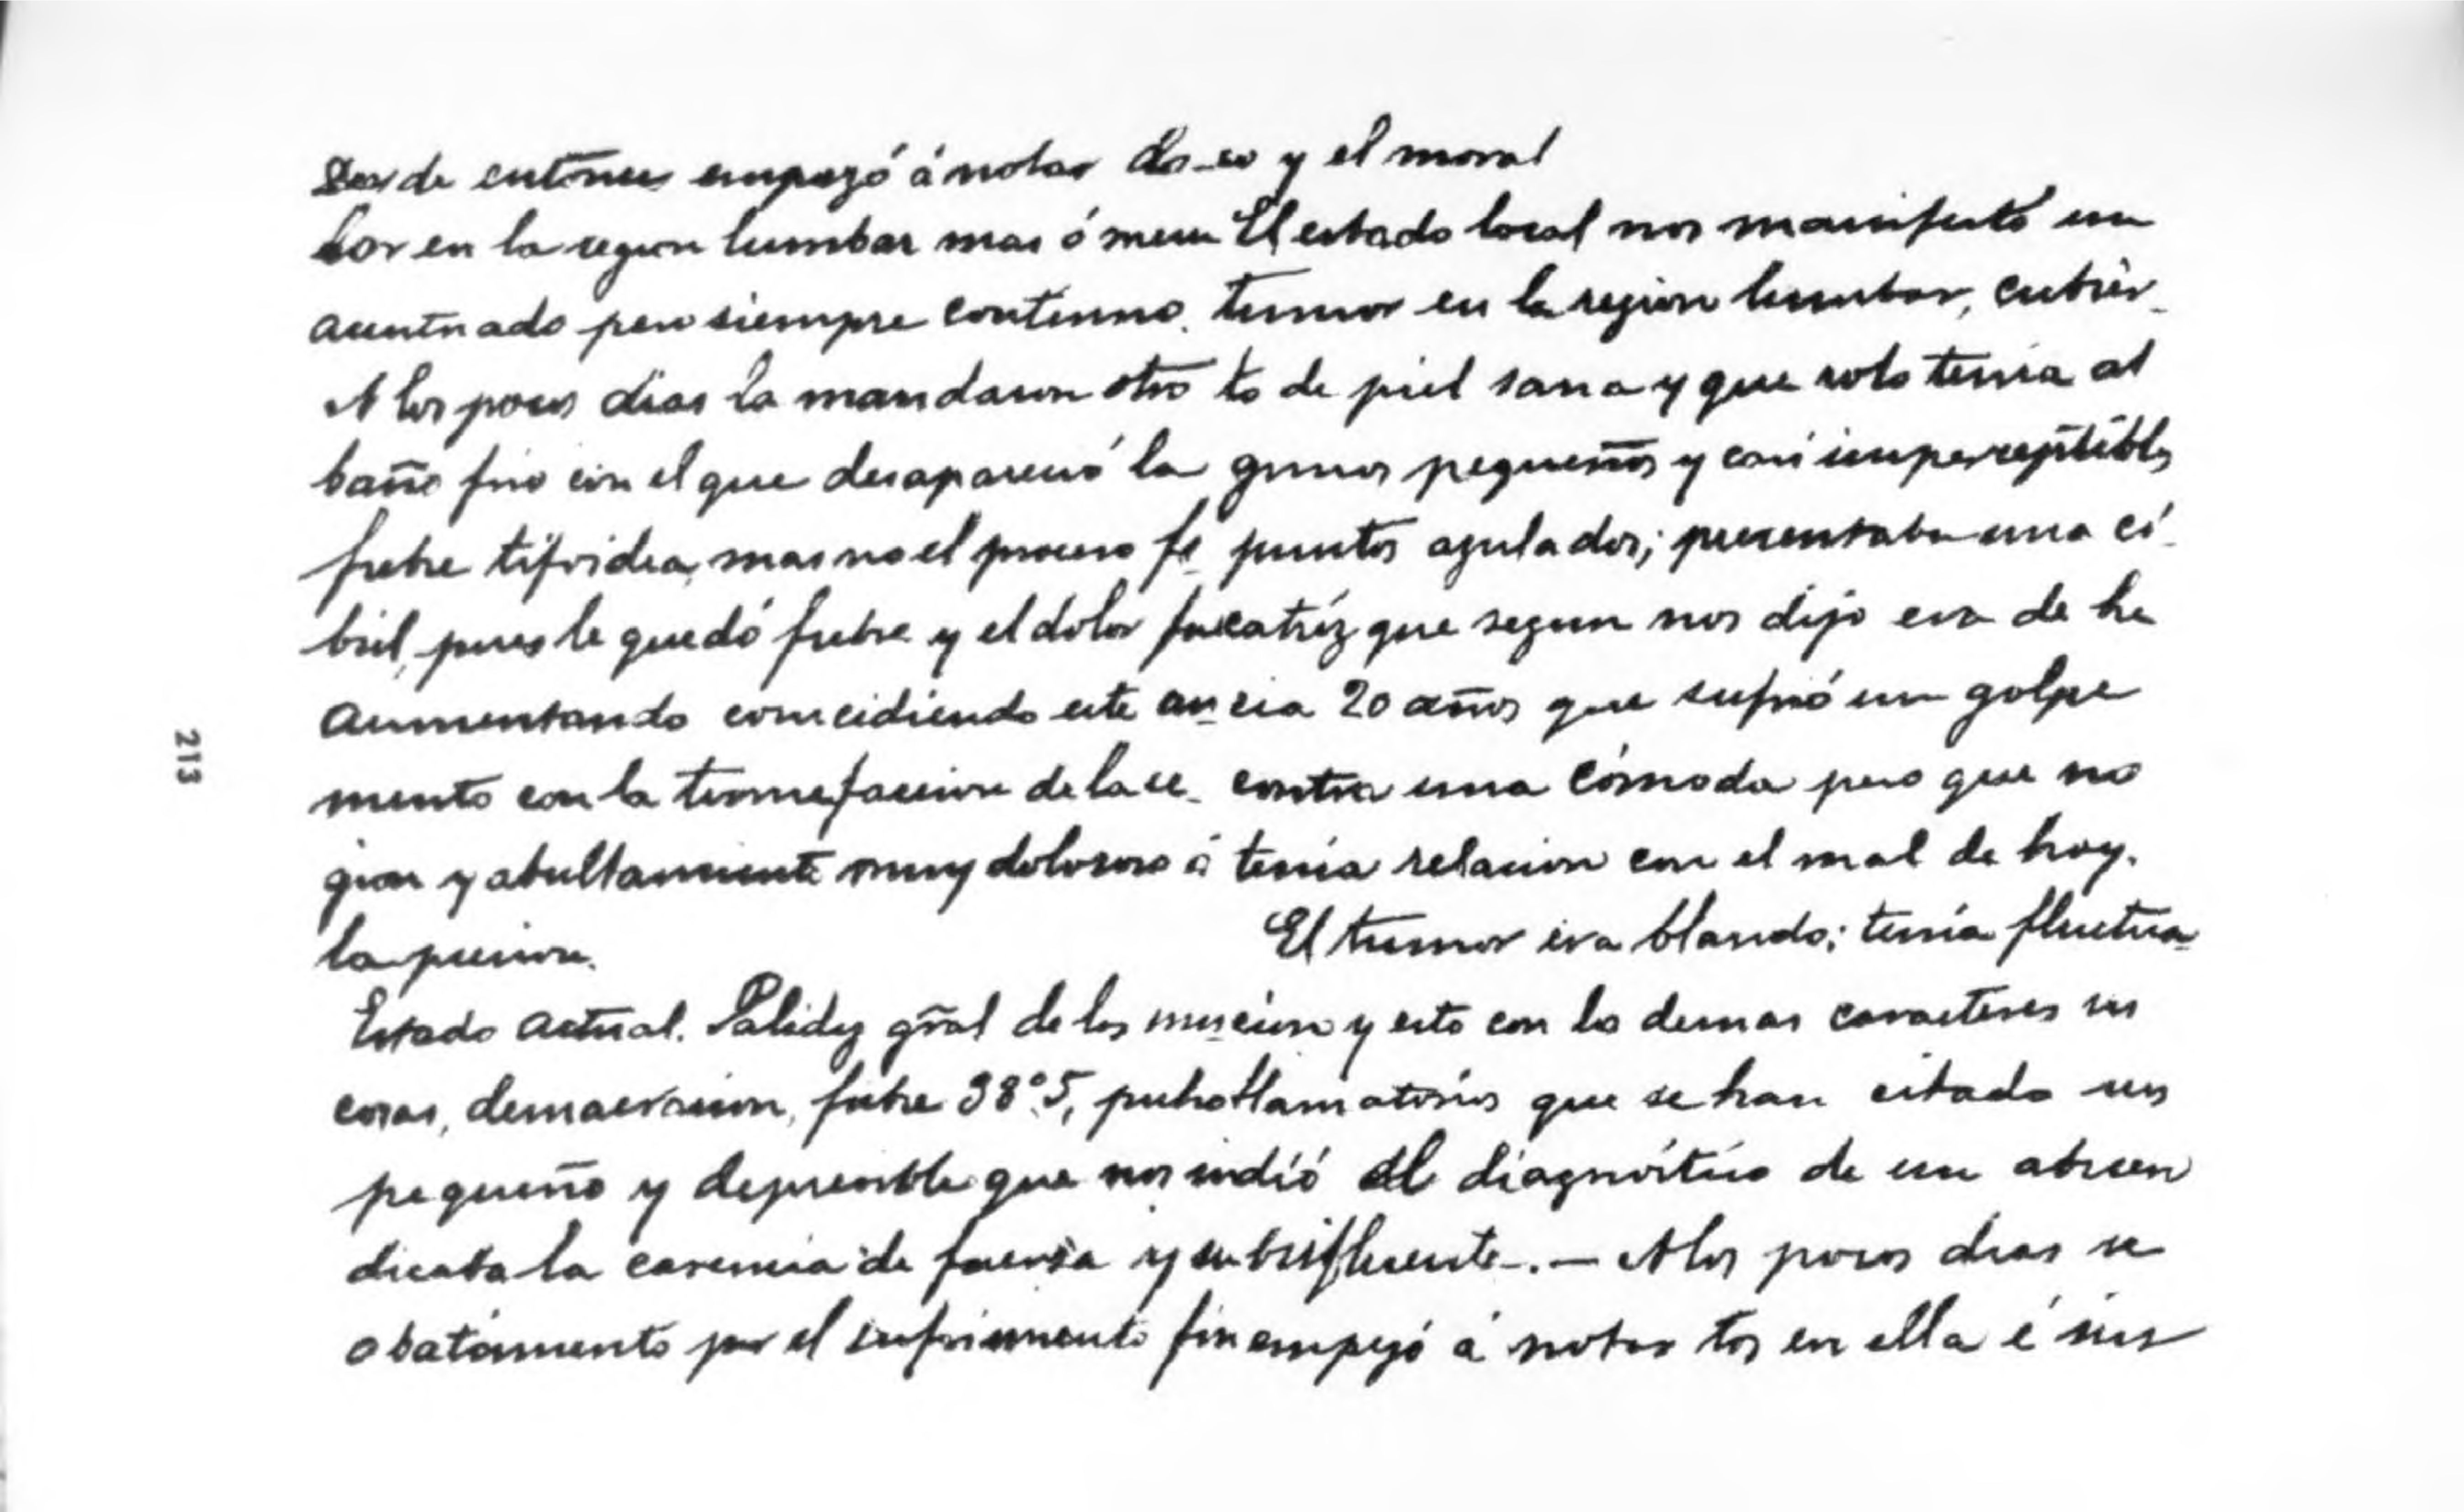 Desde entonces empezó á notar do-
lor en la region lumbar mas ó menos
acentuado pero siempre contínuo.
A los pocos dias la mandaron otro
baño frio con el que desapareció la
fiebre tifoidea, mas no el proceso fe-
bril, pues le quedó fiebre y el dolor fue
aumentando coincidiendo este au-
mento con la tumefaccion de la re-
gion y abultamiento muy doloroso á
la presion.
Estado actual. Palidez gral de las mu-
cosas, demacracion, fiebre 38º,5, pulso
pequeño y depresible que nos in-
dicaba la carencia de fuerza y su
abatimiento por el sufrimiento físi
co y el moral
El estado local nos manifestó un
tumor en la region lumbar, cubier-
to de piel sana y que solo tenia al
gunos pequeños y casi imperceptibles
puntos azulados; presentaba una ci-
catríz que segun nos dijo era de ha
cia 20 años que sufrió un golpe
contra una cómoda pero que no
tenia relacion con el mal de hoy.
El tumor era blando; tenía fluctua-
cion y esto con los demas caracteres in
flamatorios que se han citado nos
dió el diagnóstico de un absceso
osifluente.— A los pocos dias se
empezó á notar tos en ella é
213